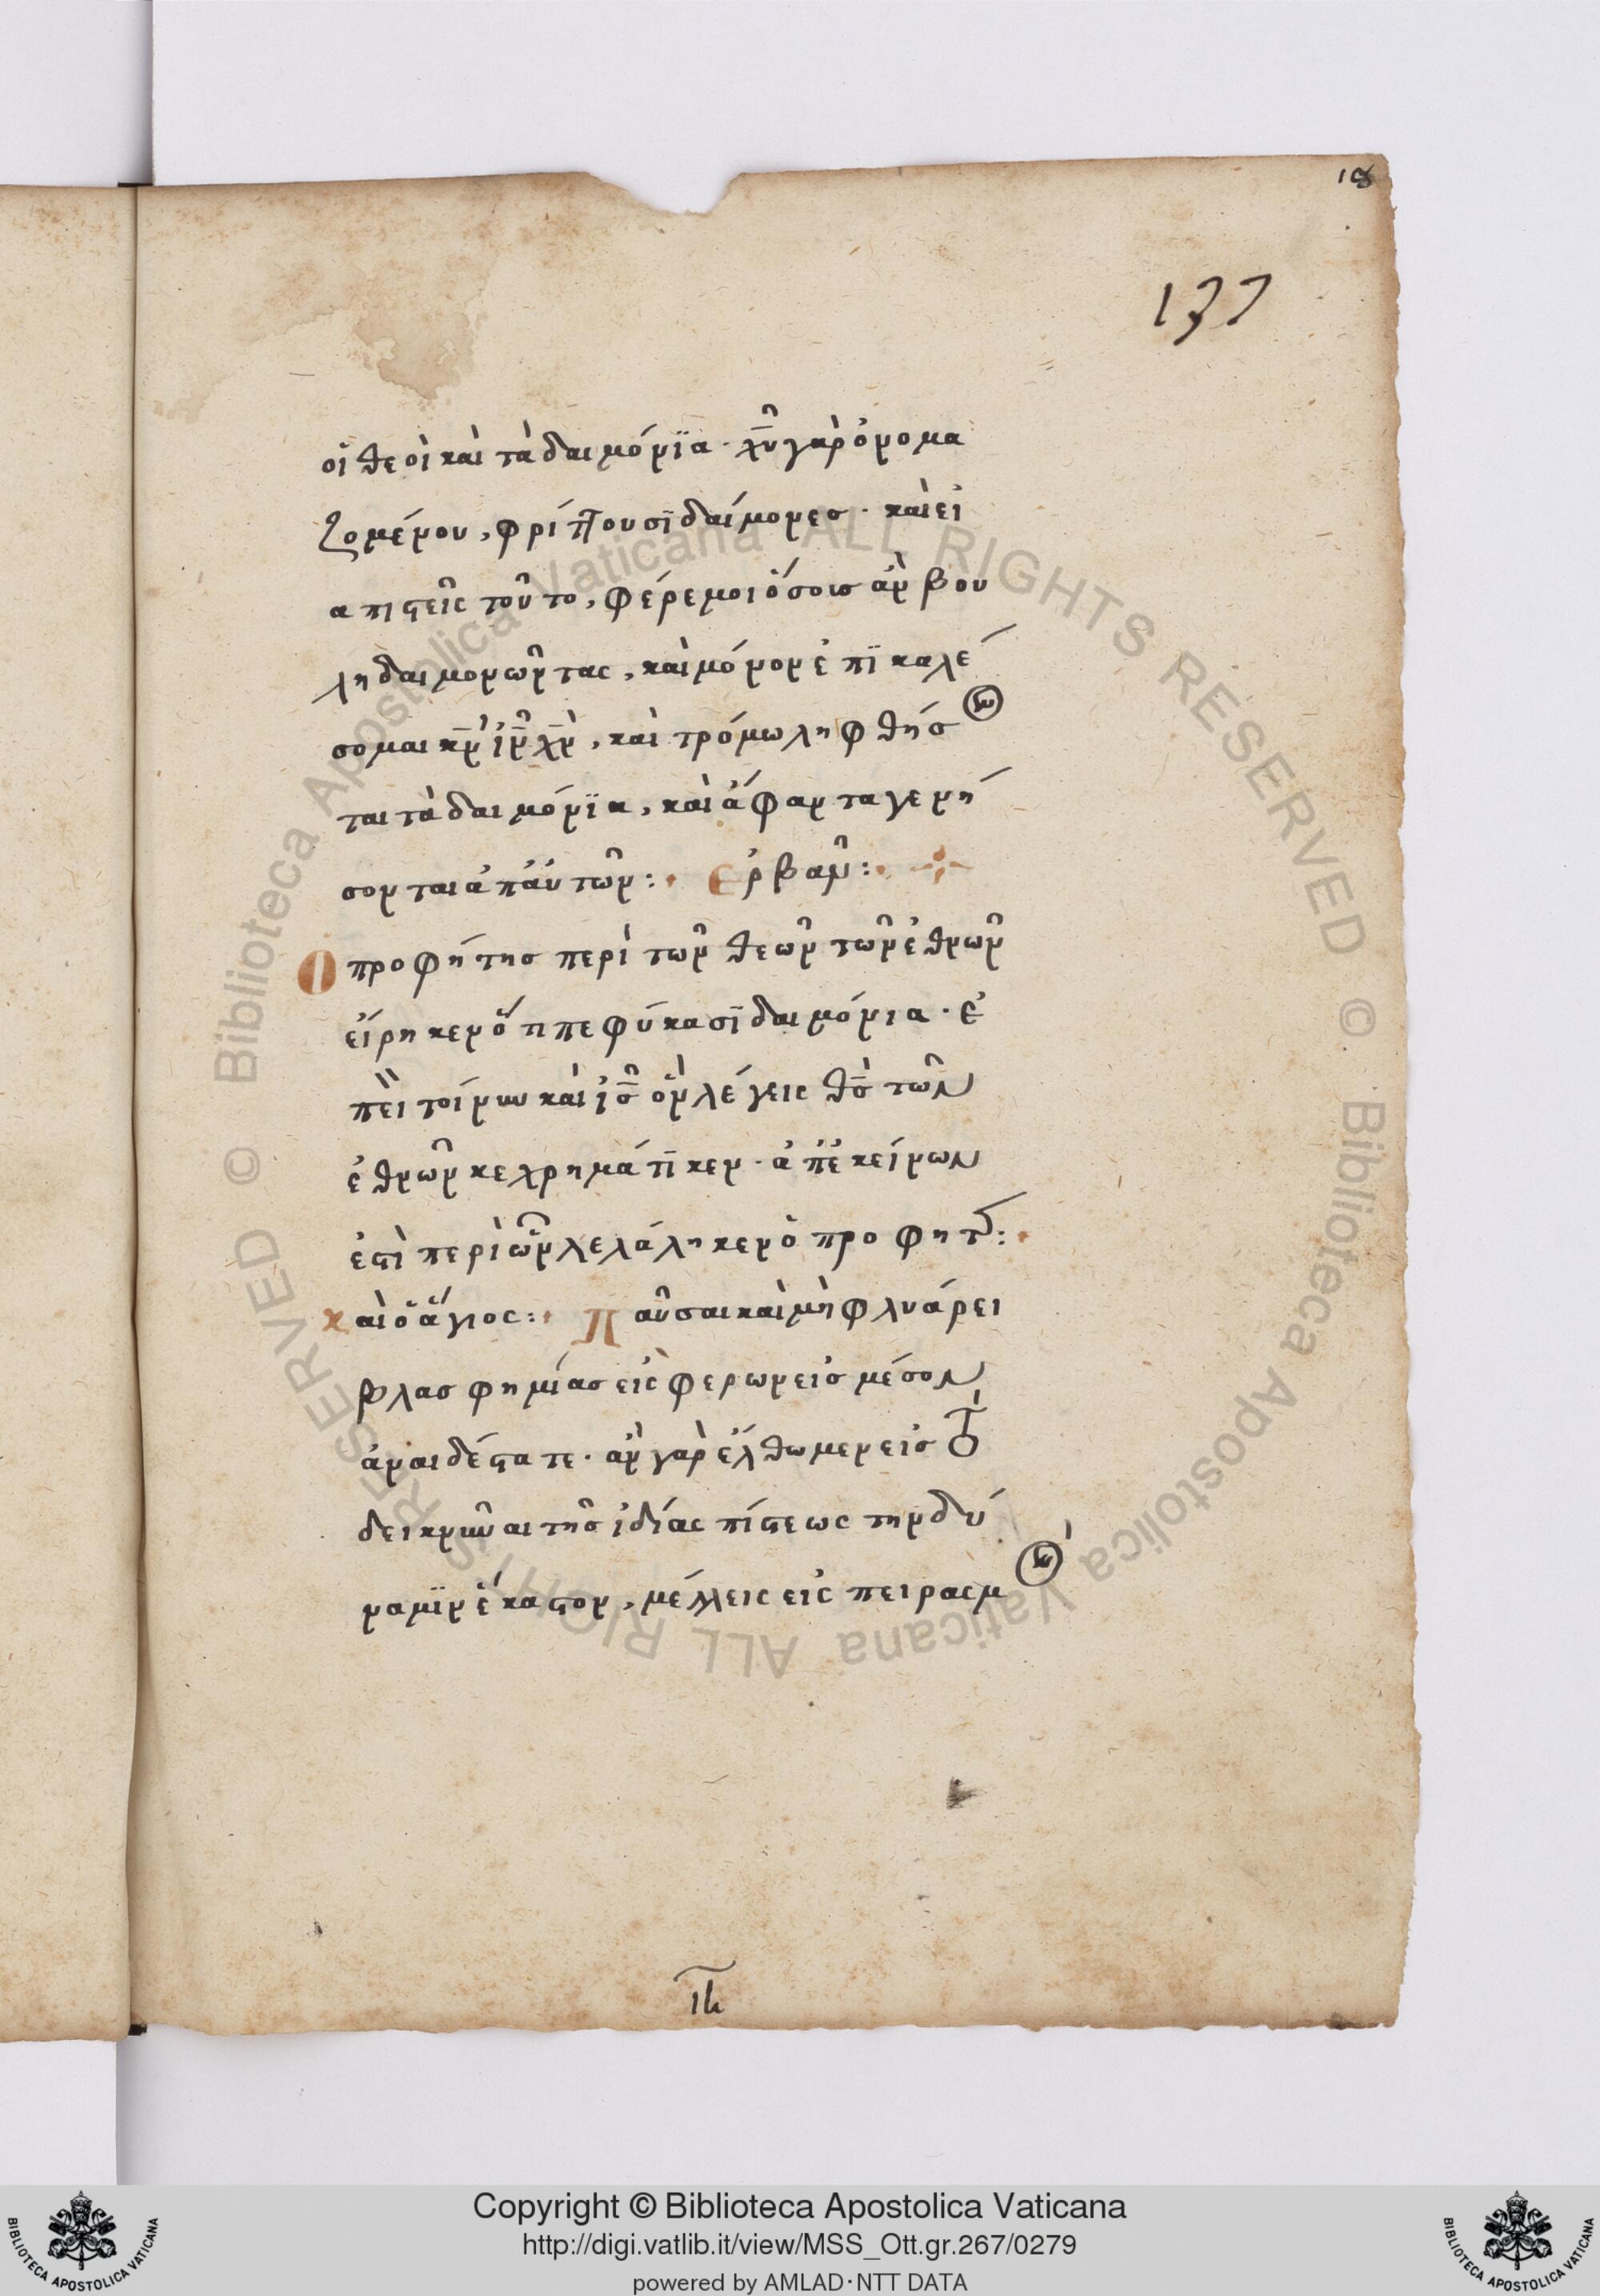 18
137
οἱ θεοὶ καὶ τὰ δαιμόνϊα · χ̅υ̅ γὰρ ὀνομα
ζομένου, φρίττουσϊ δαίμονες · καὶ εἰ
απιστεῖς τοῦτο, φέρε μοι ὅσους ἂν βου
λη δαιμονῶντας, καὶ μόνον ἐπϊκαλέ
σομαι κ̅ν̅ ἰ̅ν̅ χ̅ν̅, καὶ τρόμω ληφθήσ
ται τὰ δαιμόνϊα, καὶ ἄφαντα γενή
σονται ἀπ' αὐτῶν :· Ἐρβὰν :·
Ο προφήτης περὶ τῶν θεῶν τῶν ἐθνῶν
εἴρηκεν ὅτι πεφύκασϊ δαιμόνια · ἐ
πεὶ τοίνυν καὶ ἰ̅ς̅ ὃν λέγεις θ̅ς̅ τῶν
ἐθνῶν κεχρημάτϊκεν · ἀπ' ἐκείνων
ἐστὶ περὶ ὧν λελάληκεν ὁ προφητ :·
καὶ ὁ ἅγιος :· Παῦσαι καὶ μὴ φλυάρει
βλασφημίας εἰσφέρων εἰς μέσον
ἀναιδέστατε · ἂν γὰρ ἔλθωμεν εἰς τὸ
δεικνύναι τῆς ἰδίας πίστεως την δύ
ναμϊν ἕκαστον, μέλλεις εἰς πειρασμ
Copyright © Biblioteca Apostolica Vaticana
http://digi.vatlib.it/view/MSS_Ott.gr.267/0279
powered by AMLAD·NTT DATA
BIBLIOTECA APOSTOLICA VATICANA
BIBLIOTECA APOSTOLICA VATICANA
© Biblioteca Apostolica Vaticana ALL RIGHTS RESERVED
© Biblioteca Apostolica Vaticana ALL RIGHTS RESERVED